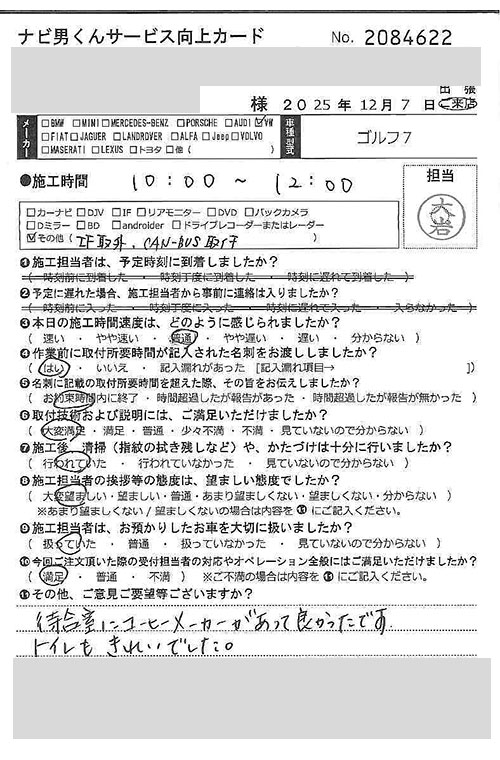 ナビ男くんサービス向上カード No. 2084622
出張
様 2025年12月7日 ご来店
メーカー
□BMW □MINI □MERCEDES-BENZ □PORSCHE □AUDI ☑VW
□FIAT □JAGUER □LANDROVER □ALFA □Jeep □VOLVO
□MASERATI □LEXUS □トヨタ □他 ( )
車種型式 ゴルフ7
●施工時間 10:00 ~ 12:00
担当
□カーナビ □DJV □IF □リアモニター □DVD □バックカメラ
□Dミラー □BD □androider □ドライブレコーダーまたはレーダー
☑その他 ( IF取外、CAN-BUS取付 )
❶施工担当者は、予定時刻に到着しましたか?
( 時刻前に到着した ・ 時刻丁度に到着した ・ 時刻に遅れて到着した )
❷予定に遅れた場合、施工担当者から事前に連絡は入りましたか?
( 時刻前に入った ・ 時刻丁度に入った ・ 時刻に遅れて入った ・ 入らなかった )
❸本日の施工時間速度は、どのように感じられましたか?
( 速い ・ やや速い ・ 普通 ・ やや遅い ・ 遅い ・ 分からない )
❹作業前に取付所要時間が記入された名刺をお渡ししましたか?
( はい ・ いいえ ・ 記入漏れがあった [記入漏れ項目→ ])
❺名刺に記載の取付所要時間を超えた際、その旨をお伝えしましたか?
( お約束時間内に終了 ・ 時間超過したが報告があった ・ 時間超過したが報告が無かった )
❻取付技術および説明には、ご満足いただけましたか?
( 大変満足 ・ 満足 ・ 普通 ・ 少々不満 ・ 不満 ・ 見ていないので分からない )
❼施工後、清掃(指紋の拭き残しなど)や、かたづけは十分に行いましたか?
( 行われていた ・ 行われていなかった ・ 見ていないので分からない )
❽施工担当者の挨拶等の態度は、望ましい態度でしたか?
( 大変望ましい ・ 望ましい ・ 普通 ・ あまり望ましくない ・ 望ましくない ・ 分からない )
※あまり望ましくない / 望ましくないの場合は内容を⓫にご記入ください。
❾施工担当者は、お預かりしたお車を大切に扱いましたか?
( 扱っていた ・ 普通 ・ 扱っていなかった ・ 見ていないので分からない )
❿今回ご注文頂いた際の受付担当者の対応やオペレーション全般にはご満足いただけましたか?
( 満足 ・ 普通 ・ 不満 ) ※ご不満の場合は内容を⓫にご記入ください。
⓫その他、ご意見ご要望等ございますか?
待合室にコーヒーメーカーがあって良かったです
トイレもきれいでした。